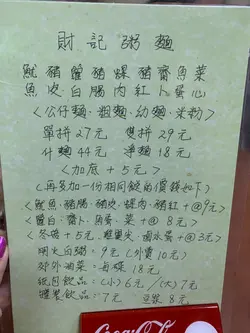 財記粥麵
魷豬蟹豬蠔豬齋魚菜
魚皮白腸肉紅卜蛋心
<公仔麵·粗麵·幼麵·米粉>
單拼27元 雙拼29元
什麵44元 淨麵18元
<加底+5元>
<再多加一份相同餸的價錢如下>
<魷魚·豬腸·豬皮·蠔肉·豬紅+@9元>
<蛋白·齋·魚蛋·菜+@8元>
<冬菇+5元·粗果尖·鹵水蛋+@3元>
明火白粥=9元(外賣10元)
郊外油菜=每碟18元
紙包飲品=(小)6元/(大)7元
罐裝飲品=7元 豆漿8元
Coca-Cola